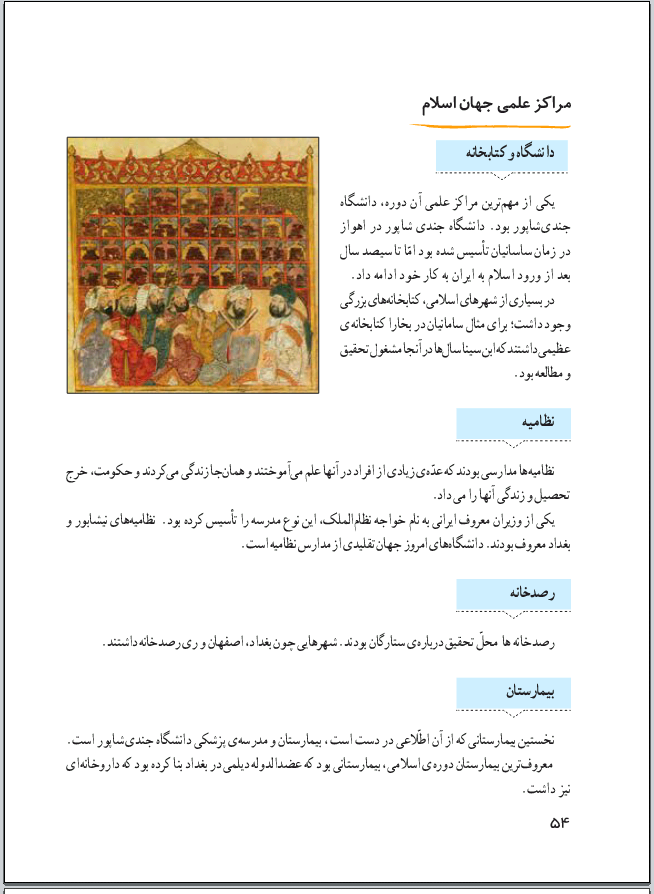 مراکز علمی جهان اسلام
دانشگاه و کتابخانه
یکی از مهم‌ترین مراکز علمی آن دوره، دانشگاه
جندی‌شاپور بود. دانشگاه جندی شاپور در اهواز
در زمان ساسانیان تأسیس شده بود امّا تا سیصد سال
بعد از ورود اسلام به ایران به کار خود ادامه داد.
در بسیاری از شهرهای اسلامی، کتابخانه‌های بزرگی
وجود داشت؛ برای مثال سامانیان در بخارا کتابخانه ی
عظیمی داشتند که ابن سینا سال‌ها در آنجا مشغول تحقیق
و مطالعه بود.
نظامیه
نظامیه‌ها مدارسی بودند که عدّه‌ی زیادی از افراد در آنها علم می‌آموختند و همان‌جا زندگی می‌کردند و حکومت، خرج
تحصیل و زندگی آنها را می‌داد.
یکی از وزیران معروف ایرانی به نام خواجه نظام‌الملک، این نوع مدرسه را تأسیس کرده بود. نظامیه‌های نیشابور و
بغداد معروف بودند. دانشگاه‌های امروز جهان تقلیدی از مدارس نظامیه است.
رصدخانه
رصدخانه ها محلّ تحقیق درباره‌ی ستارگان بودند. شهرهایی چون بغداد، اصفهان و ری رصدخانه داشتند.
بیمارستان
نخستین بیمارستانی که از آن اطّلاعی در دست است، بیمارستان و مدرسه‌ی پزشکی دانشگاه جندی‌شاپور است.
معروف‌ترین بیمارستان دوره‌ی اسلامی، بیمارستانی بود که عضدالدوله دیلمی در بغداد بنا کرده بود که داروخانه‌ای
نیز داشت.
۵۴